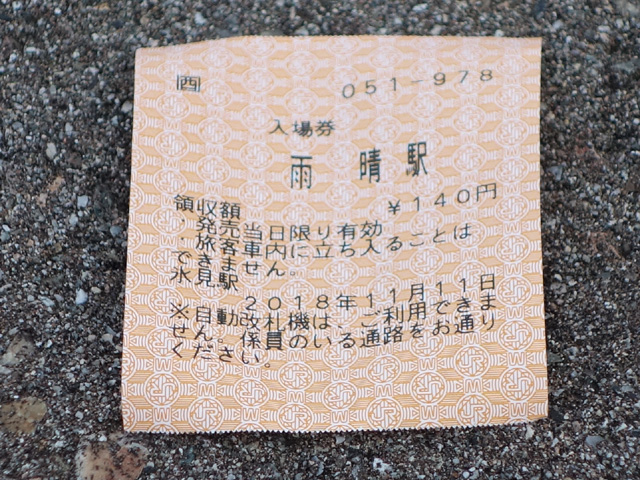 西 051-978
入場券
雨晴駅
領収額 ¥140円
・発売当日限り有効
・旅客車内に立ち入ることは
できません。
氷見駅 2018年11月11日
※自動改札機は、ご利用できま
せん。係員のいる通路をお通り
ください。